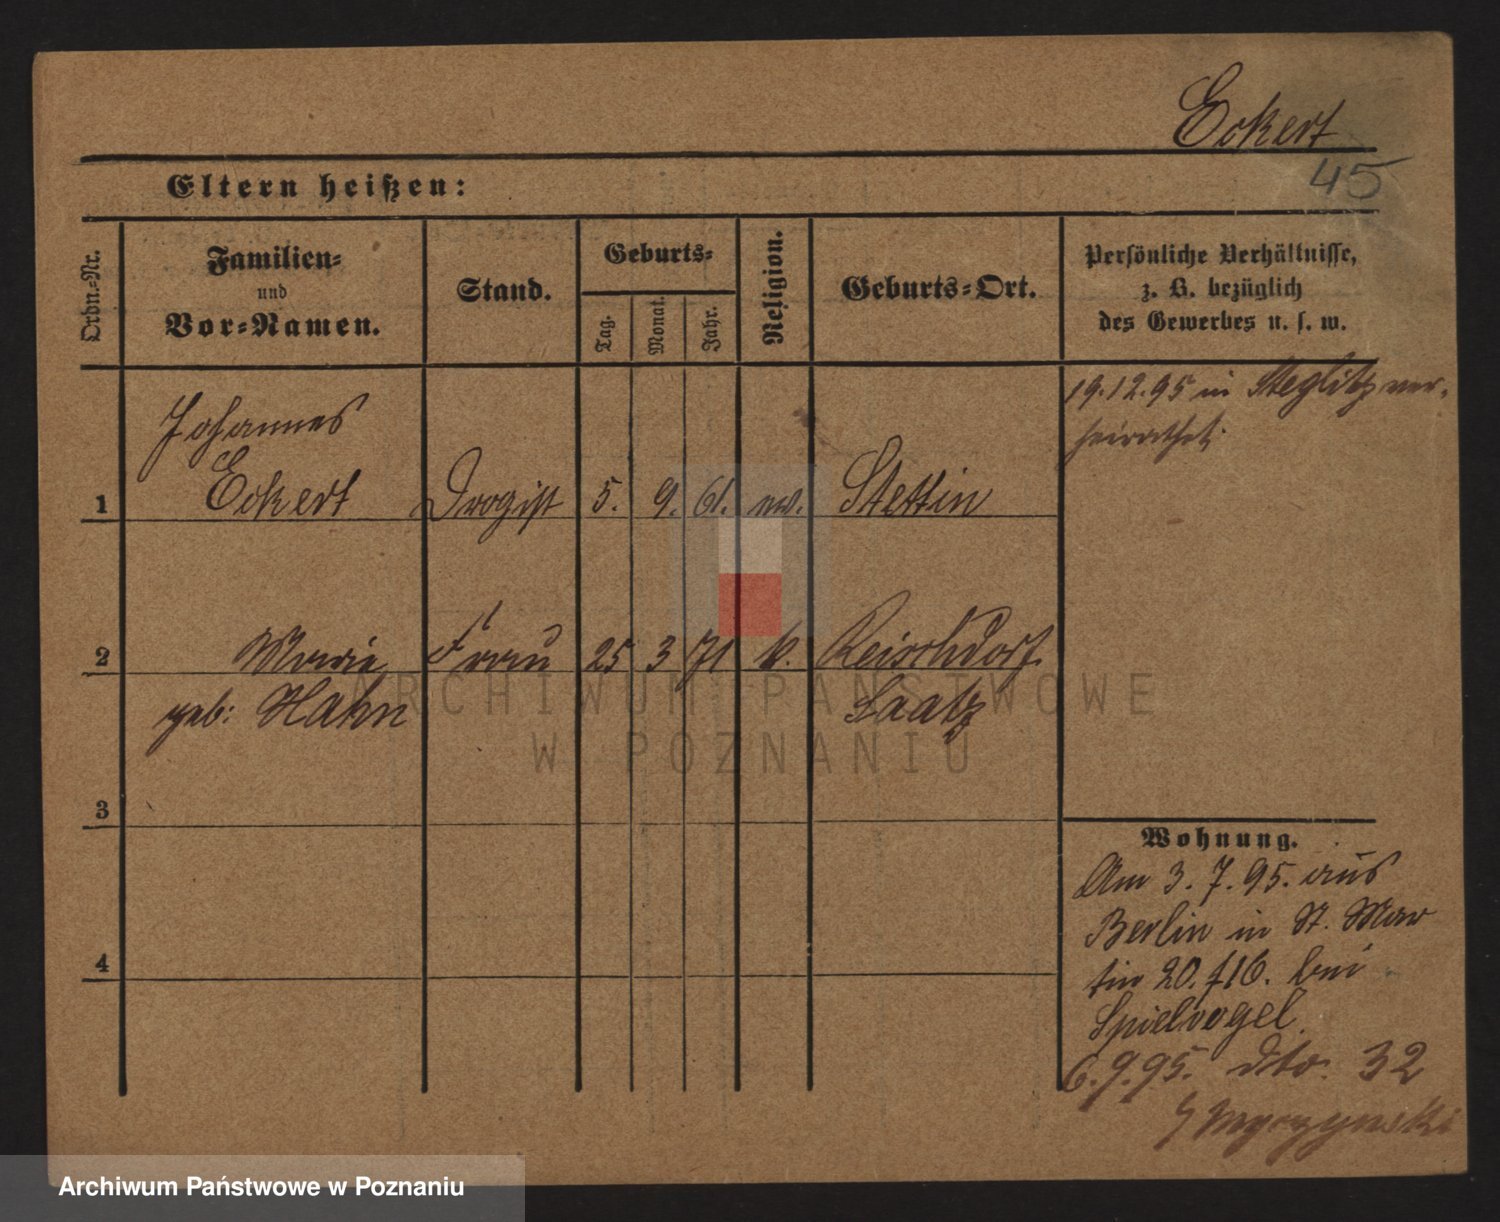 Eckert
45
Eltern heißen:
Ordn.-Nr.
Familien-
und
Vor-Namen.
Stand.
Geburts-
Tag.
Monat.
Jahr.
Religion.
Geburts-Ort.
Persönliche Verhältnisse,
z. B. bezüglich
des Gewerbes u. s. w.
1
Johannes
Eckert
Drogist
5.
9.
61.
ev.
Stettin
19.12.95 in Steglitz ver-
heirathet.
2
Marie
geb: Hahn
Frau
25
3
71
k.
Reischdorf
Saatz
3
4
Wohnung.
Am 3. 7. 95. aus
Berlin in St. Mar
tin 20. bei
Spielvogel.
6.9.95. dto. 32
ARCHIWUM PAŃSTWOWE
W POZNANIU
Archiwum Państwowe w Poznaniu